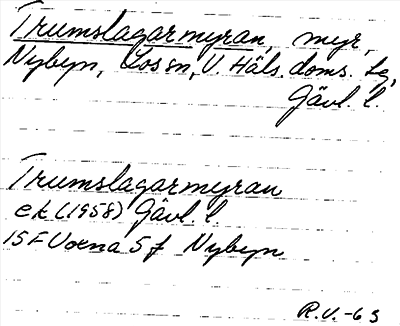 Trumslagarmyran, myr,
Nybyn, Los sn, V. Häls. doms. lg,
Gävl. l.
Trumslagarmyran
ek (1958) Gävl. l.
15F Voxna 5f Nybyn
R.V. -63